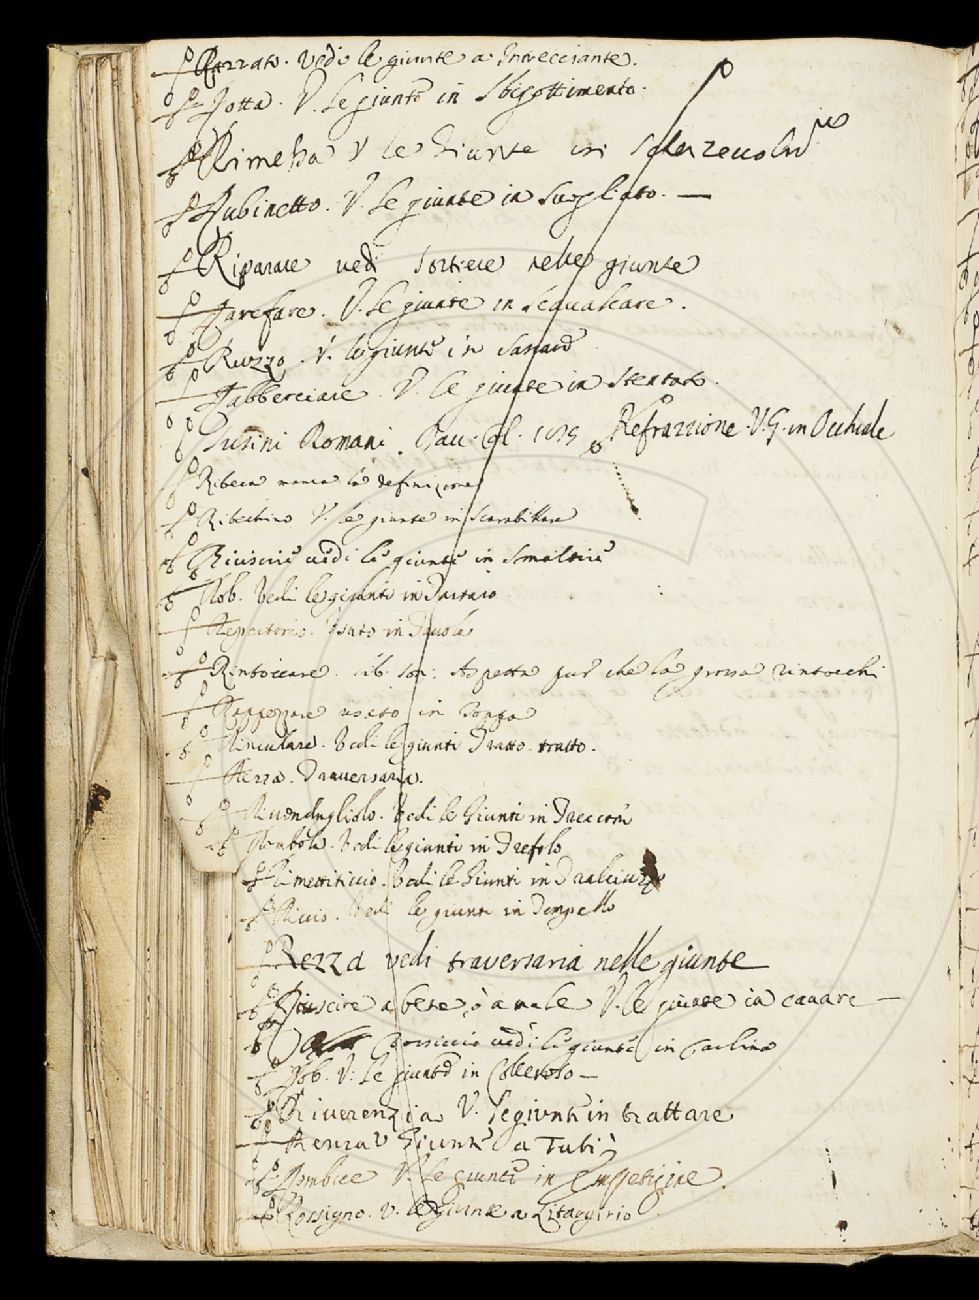 Razzato. Vedi le giunte a Intrecciante.
Rotta. V. le giunte in Sbigottimento.
Rimessa V le Giunte in
Rubinetto. V. le giunte in Svogliato. —
Riparare vedi Sortiere nelle giunte
Rarefare. V. le giunte in Scavalcare.
Ruzzo. V. le giunte in
Rabberciare. V. le giunte in Stentato.
Rusini Romani. Dav. Col. Refrazzione. V. G. in Occhiale
Ribeca manca la definizione
Ribechino V. le giunte in Strambellare
Riuscire vedi le giunte in Smaltire
Rob. Vedi le giunte in Tartaro
Repertorio. Usato in Tavola
Rintoccare. Lib. Son: Aspetta pur che la grossa rintocchi
Rappezzare usato in Toppa
Rinculare. Vedi le giunte Tratto tratto.
Rezza. Traversaria.
Rivendugliolo. Vedi le Giunte in Treccone
Rombola. Vedi le giunte in Trefolo
Rimettiticcio. Vedi le Giunte in Tralciuzzo
Riccio. Vedi le giunte in Tempello
Rezza vedi traversaria nelle giunte
Riuscire a bene, o a male V. le giunte in cavare —
vedi le giunte in
Rob. V. le giunte in Collettolo —
Riverenzia V. le giunte in trattare
Renza V Giunte a Tubi
Rombice V. le giunte in
Rossigno. V. le Giunte a Litargirio